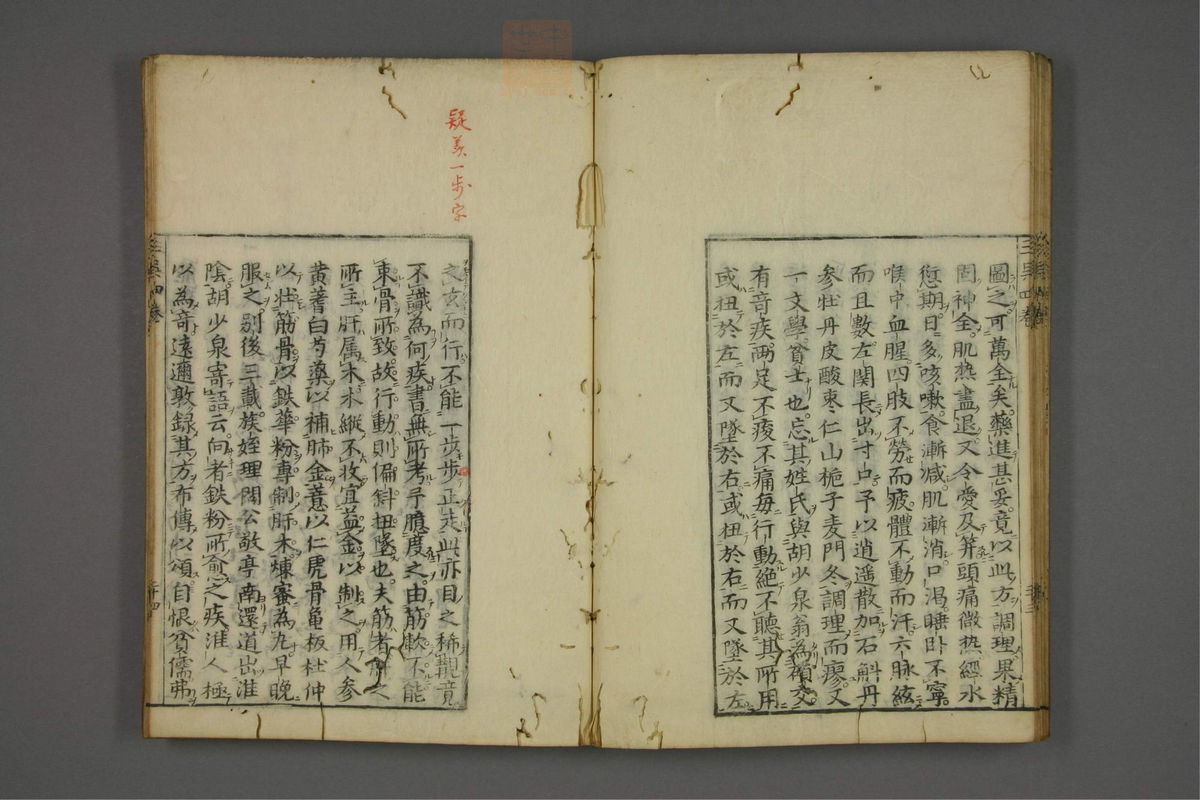 圖之可萬全矣藥進甚妥竟以此方調理果精
固神全肌热盡退又令愛及笄頭痛微热經水
愆期日多咳嗽食漸减肌漸消口渴睡卧不寧
喉中血腥四肢不勞而疲體不動而汗六脉絃
而且數左関長出寸口予以逍遥散加石斛丹
參牡丹皮酸枣仁山梔子麦門冬調理而瘳又
一文學貧士也忘其姓氏與胡少泉翁為頌交
有竒疾兩足不痠不痛每行動絶不聽其所用
或扭於左而又墜於右或扭於右而又墜於左
疑羨一步字
之玄而行不能一步步正走此亦目之稀覩竟
不識為何疾書無所考予臆度之由筋軟不能
束骨所致故行動則偏斜扭墜也夫筋者肝之
所主肝属木木縱不收宜益金以制之用人参
黄蓍白芍藥以補肺金薏以仁虎骨亀板杜仲
以壮筋骨以鉄華粉專制肝木煉蜜為丸早晚
服之别後三載族姪理閣公敬亭南還道出淮
陰胡少泉寄語云向者鉄粉所愈之疾淮人極
以為竒遠邇敦録其方布傳以頌自恨貧儒弗